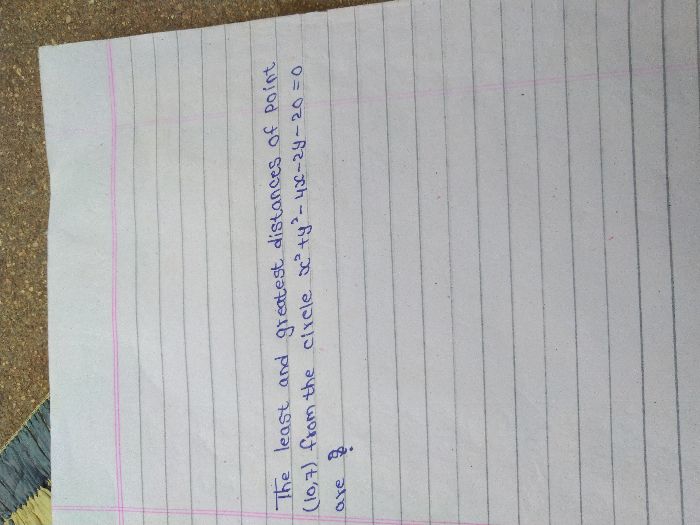 The least and greatest distances of point
(10,7) from the circle x²+y²-4x-2y-20=0
are ?